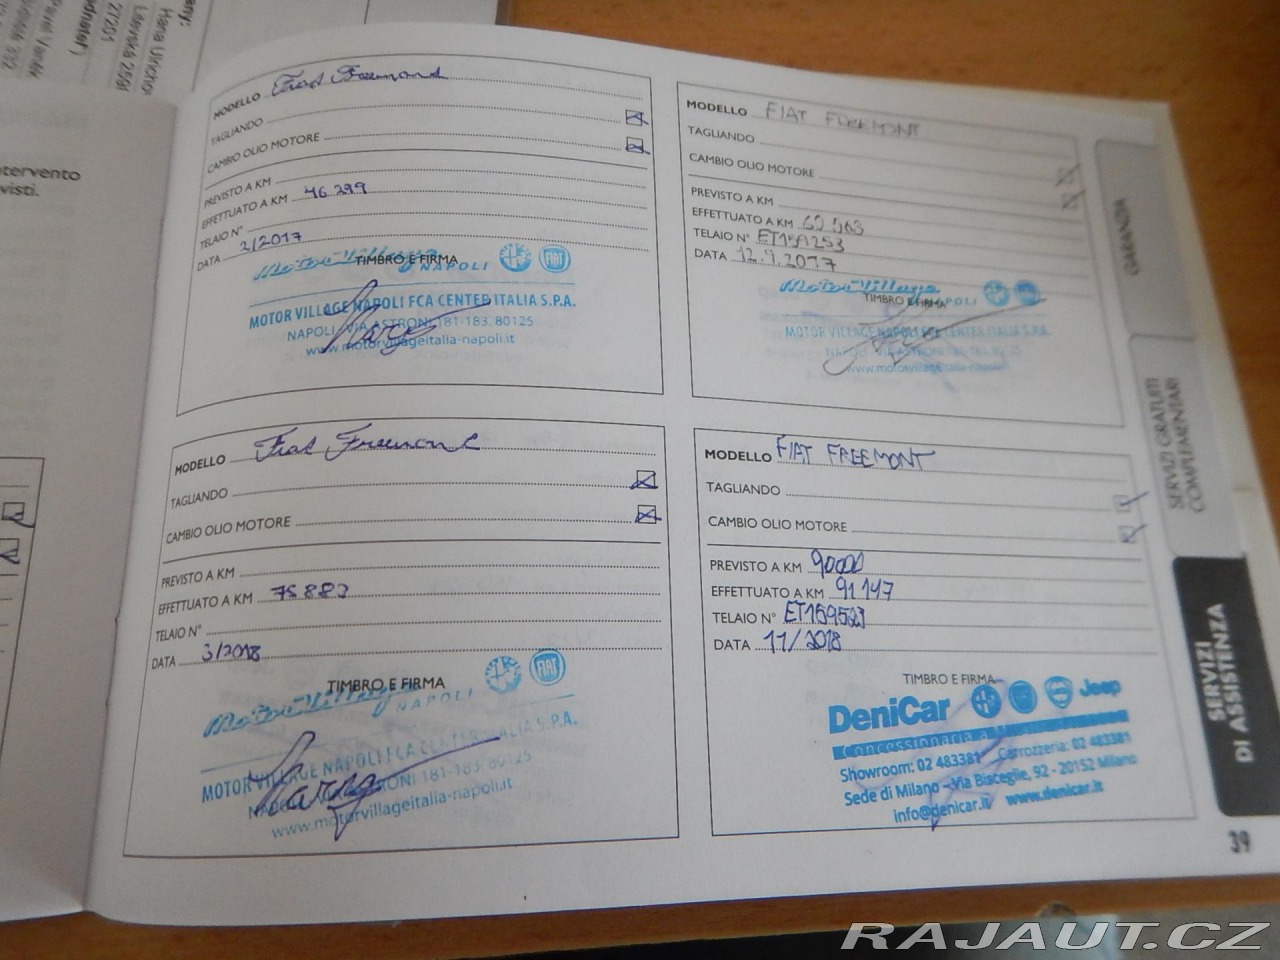 any:
Hana Ulrichov
Litevská 259
27201
dnatel )
Pavel Vaněk
ntervento
visti.
MODELLO Fiat Freemont
TAGLIANDO
CAMBIO OLIO MOTORE
PREVISTO A KM
EFFETTUATO A KM 46 299
TELAIO N°
DATA 2/2017
TIMBRO E FIRMA
Motor Village NAPOLI FIAT
MOTOR VILLAGE NAPOLI FCA CENTER ITALIA S.P.A.
NAPOLI VIA ASTRONI 181-183. 80125
www.motorvillageitalia-napoli.it
MODELLO FIAT FREEMONT
TAGLIANDO
CAMBIO OLIO MOTORE
PREVISTO A KM
EFFETTUATO A KM
TELAIO N°
DATA 12.9.2017
TIMBRO E FIRMA
Motor Village NAPOLI
MOTOR VILLAGE NAPOLI FCA CENTER ITALIA S.P.A.
www.motorvillageitalia-napoli
MODELLO Fiat Freemont
TAGLIANDO
CAMBIO OLIO MOTORE
PREVISTO A KM
EFFETTUATO A KM 75 882
TELAIO N°
DATA 3/2018
TIMBRO E FIRMA
Motor Village NAPOLI FIAT
MOTOR VILLAGE NAPOLI FCA CENTER ITALIA S.P.A.
NAPOLI VIA ASTRONI 181-183. 80125
www.motorvillageitalia-napoli.it
MODELLO FIAT FREEMONT
TAGLIANDO
CAMBIO OLIO MOTORE
PREVISTO A KM 90000
EFFETTUATO A KM 91 147
TELAIO N° ET159523
DATA 11/2018
TIMBRO E FIRMA
DeniCar Jeep
Concessionaria
Showroom: 02 483381 Carrozzeria: 02 483381
Sede di Milano - Via Bisceglie, 92 - 20152 Milano
info@denicar.it www.denicar.it
GARANZIA
SERVIZI GRATUITI
COMPLEMENTARI
SERVIZI
DI ASSISTENZA
39
RAJAUT.CZ